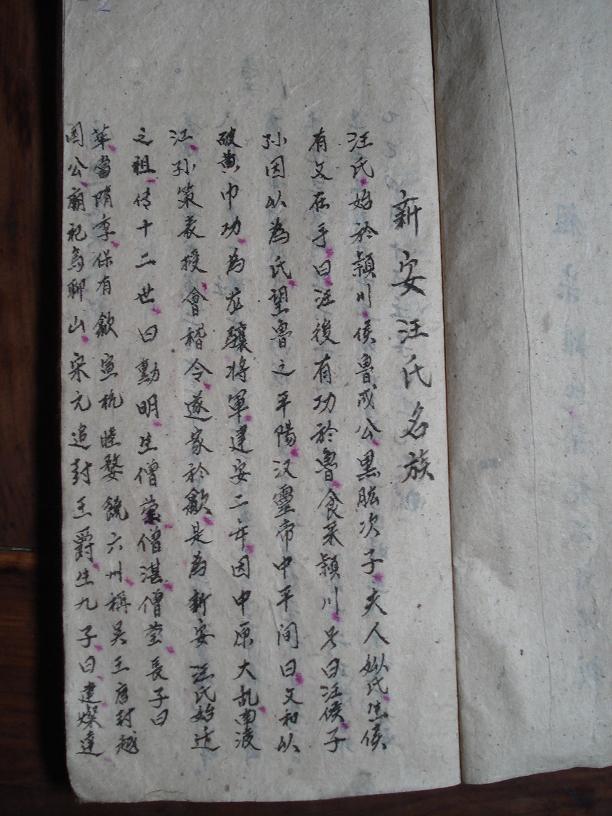 新安汪氏名族
汪氏始於潁川侯魯成公黑肱次子夫人姒氏生侯
有文在手曰汪後有功於魯食采潁川号曰汪侯子
孙因以為氏望魯之平陽汉靈帝中平间曰文和以
破黄巾功為龙驤將軍建安二年因中原大乱南渡
江孙策表授會稽令遂家於歙是為新安汪氏始迁
之祖传十二世曰勳明生僧湛僧莹長子曰
華當隋季保有歙宣杭睦婺饒六州稱吴王唐封越
国公廟祀烏聊山宋元追封王爵生九子曰建燦達